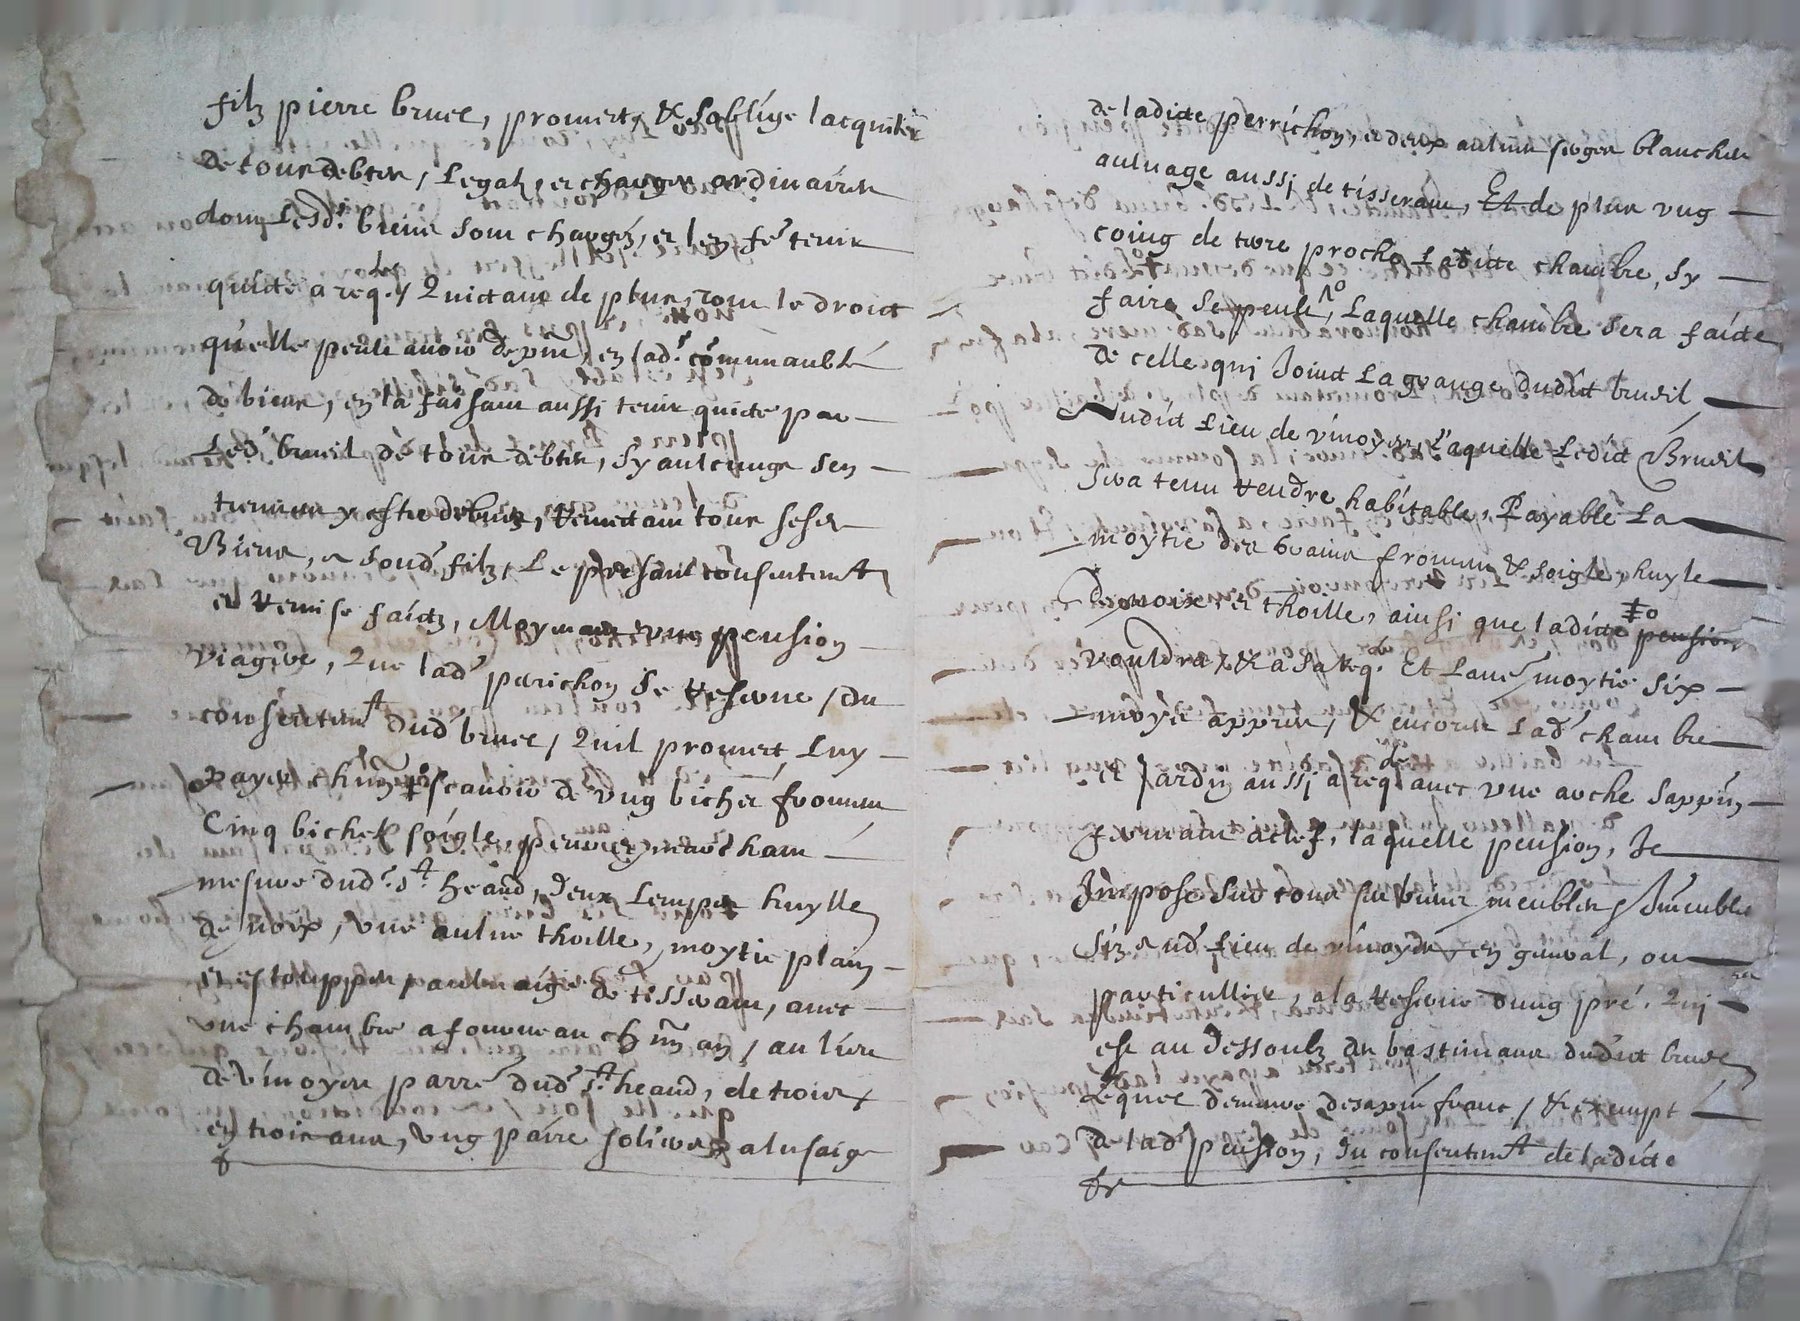 filz pierre bruel, promect, & s'oblige l'acquiter
de tous debtes, legatz, et charges ordinaires
dont lesd. biens sont chargés, et l'en fe tenir
quicte a req. Quictant de plus, tout le droict
qu'elle peult avoir de pnt, en lad. communaulté
de biens, en la faisant aussi tenir quicte par
led. brueil de tous debtes, sy aulcungs s'en
treuvent y estre debues, remectant tous sesd.
Biens, a soud. filz, Le presant consentemt
et remise faictz, Moyenant une pension
viagere, Que lad. perichon se reserve, du
consentemt dud. bruel, Quil promect luy
payer scavoir de ung bichet froment
Cinq bichetz soigle, marchant
mesure dud. st. heand, deux huylle
de noix, une aulne thoille, moytie plain
et estouppes, aulnaige de tisserant, avec
une chambre a fourneau au lieu
de Vinoyes parre dud. st. heand, de trois
en trois ans, ung paire soliers a l'usaige
de ladicte perrichon, et deux aulnes serges blanches
aulnage aussi de tisserant, Et de plus ung
coing de terre proche ladicte chambre, sy
faire se peult, Laquelle chambre sera faicte
de celle qui joinct la grange dudict brueil
Audict lieu de vinoyes, Laquelle Ledict Brueil
sera tenu rendre habitable, Payable La
moytie des grains froment & soigle, huyle
De noix, et thoille, ainsi que ladicte pension
vouldra, & a sa req. Et l'autre moytie six
moys appres, & encores lad. chambre
Et Jardin aussi a req. avec une arche sappin
fermant a clef, laquelle pension, se
Impose sur tous ses biens meubles, Immeubles
Siz aud. lieu de vinoyes en general, ou
particullier, a la reserve dung pré. Qui
est au dessoubz des bastimans dudict bruel
Lequel demeure desapnt franc, & exempt
de lad. pension, du consentemt de ladicte